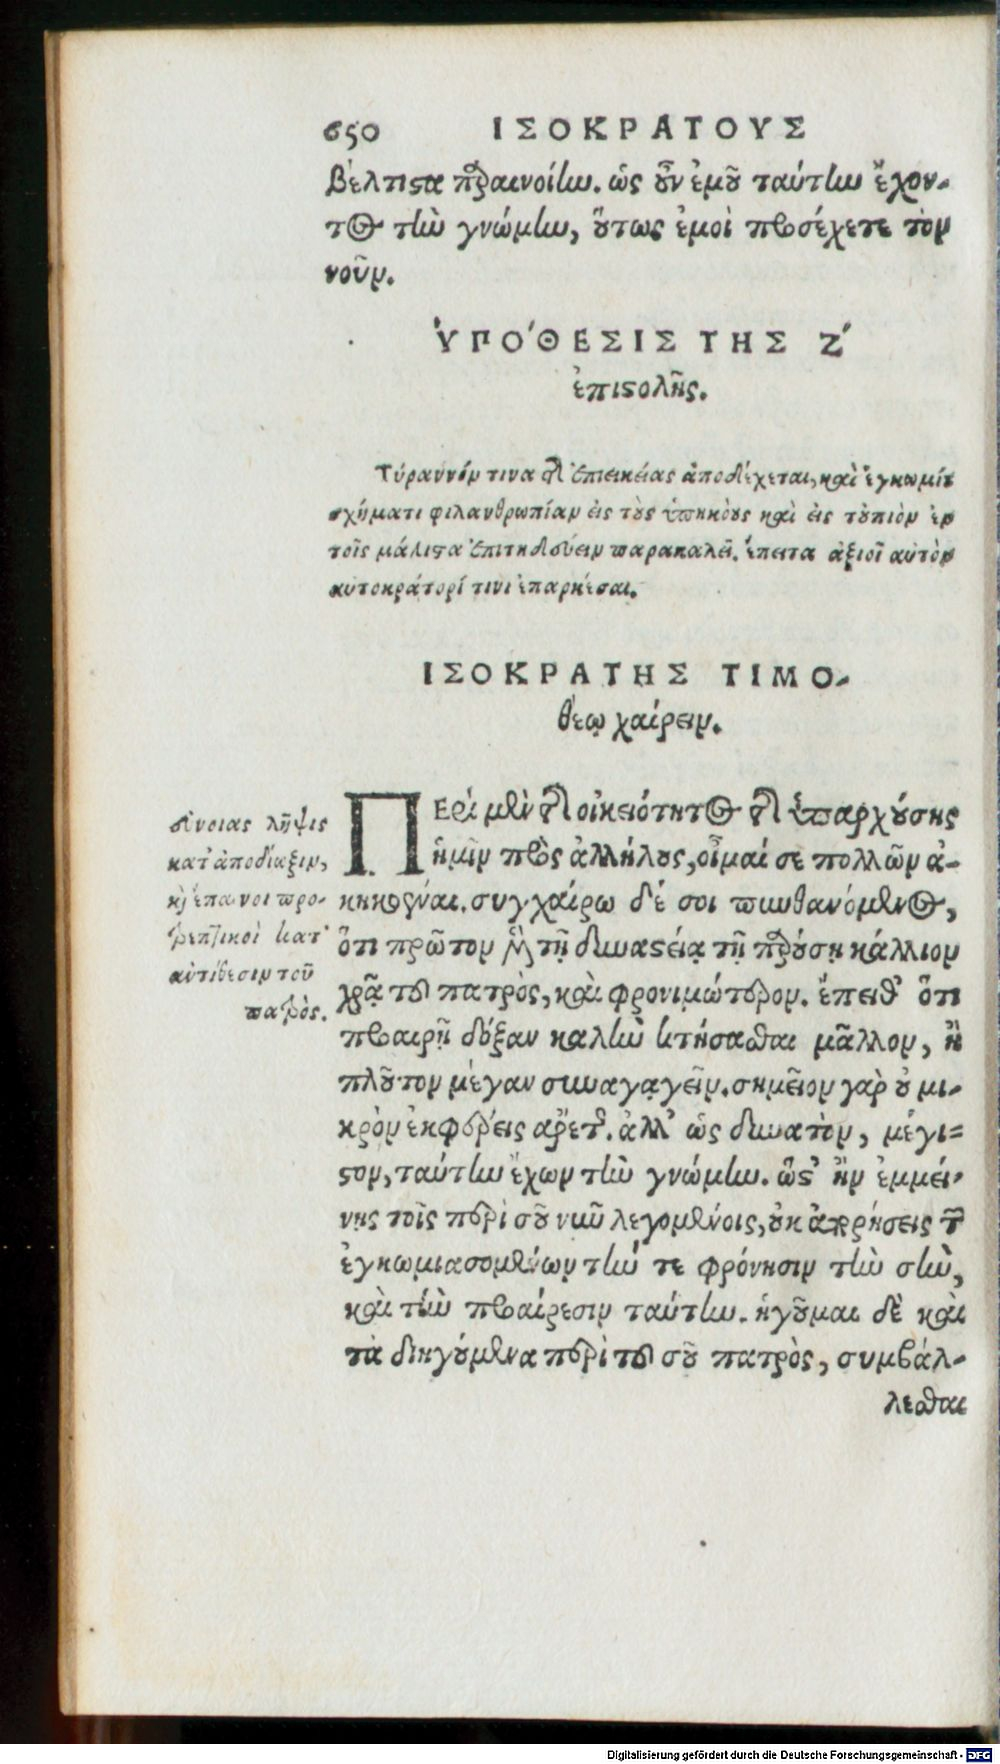 650 ΙΣΟΚΡΑΤΟΥΣ
βέλτιστα παραινοίην. ὡς οὖν ἐμοῦ ταύτην ἔχον-
τος τὴν γνώμην, οὕτως ἐμοὶ προσέχετε τὸν
νοῦν.
ὙΠΟ´ΘΕΣΙΣ ΤΗΣ Ζ´
ἐπιστολῆς.
Τύραννόν τινα τῆς ἐπιεικείας ἀποδέχεται, καὶ ἐγκωμίου
σχήματι φιλανθρωπίαν εἰς τοὺς ὑπηκόους καὶ εἰς τοὐπιὸν ἐν
τοῖς μάλιστα ἐπιτηδεύειν παρακαλεῖ. ἔπειτα ἀξιοῖ αὐτὸν
αὐτοκράτορί τινι ἐπαρκέσαι.
ΙΣΟΚΡΑΤΗΣ ΤΙΜΟ-
θέῳ χαίρειν.
ΠΕρὶ μὲν τῆς οἰκειότητος τῆς ὑπαρχούσης
ἡμῖν πρὸς ἀλλήλους, οἶμαί σε πολλῶν ἀ-
κηκοέναι. συγχαίρω δέ σοι πυνθανόμενος,
ὅτι πρῶτον μὲν τῇ δυναστείᾳ τῇ παρούσῃ κάλλιον
χρᾷ τοῦ πατρὸς, καὶ φρονιμώτερον. ἔπειθ' ὅτι
προαιρῇ δόξαν καλὴν κτήσασθαι μᾶλλον, ἢ
πλοῦτον μέγαν συναγαγεῖν. σημεῖον γὰρ οὐ μι-
κρὸν ἐκφέρεις ἀρετῆς. ἀλλ' ὡς δυνατὸν, μέγι=
στον, ταύτην ἔχων τὴν γνώμην. ὥστ' ἢν ἐμμεί-
νης τοῖς περὶ σοῦ νῦν λεγομένοις, οὐκ ἀπορήσεις τῶν
ἐγκωμιασομένων τήν τε φρόνησιν τὴν σὴν,
καὶ τὴν προαίρεσιν ταύτην. ἡγοῦμαι δὲ καὶ
τὰ διηγούμενα περὶ τοῦ σοῦ πατρὸς, συμβάλ-
λεσθαι
εὐνοίας λῆψις
κατ' ἀπόδειξιν,
καὶ ἔπαινοι προ-
τρεπτικοὶ κατ'
ἀντίθεσιν τοῦ
πατρός.
Digitalisierung gefördert durch die Deutsche Forschungsgemeinschaft - DFG